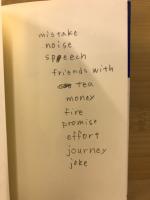 mistake
noise
speech
friends with
tea
money
fire
promise
effort
journey
joke